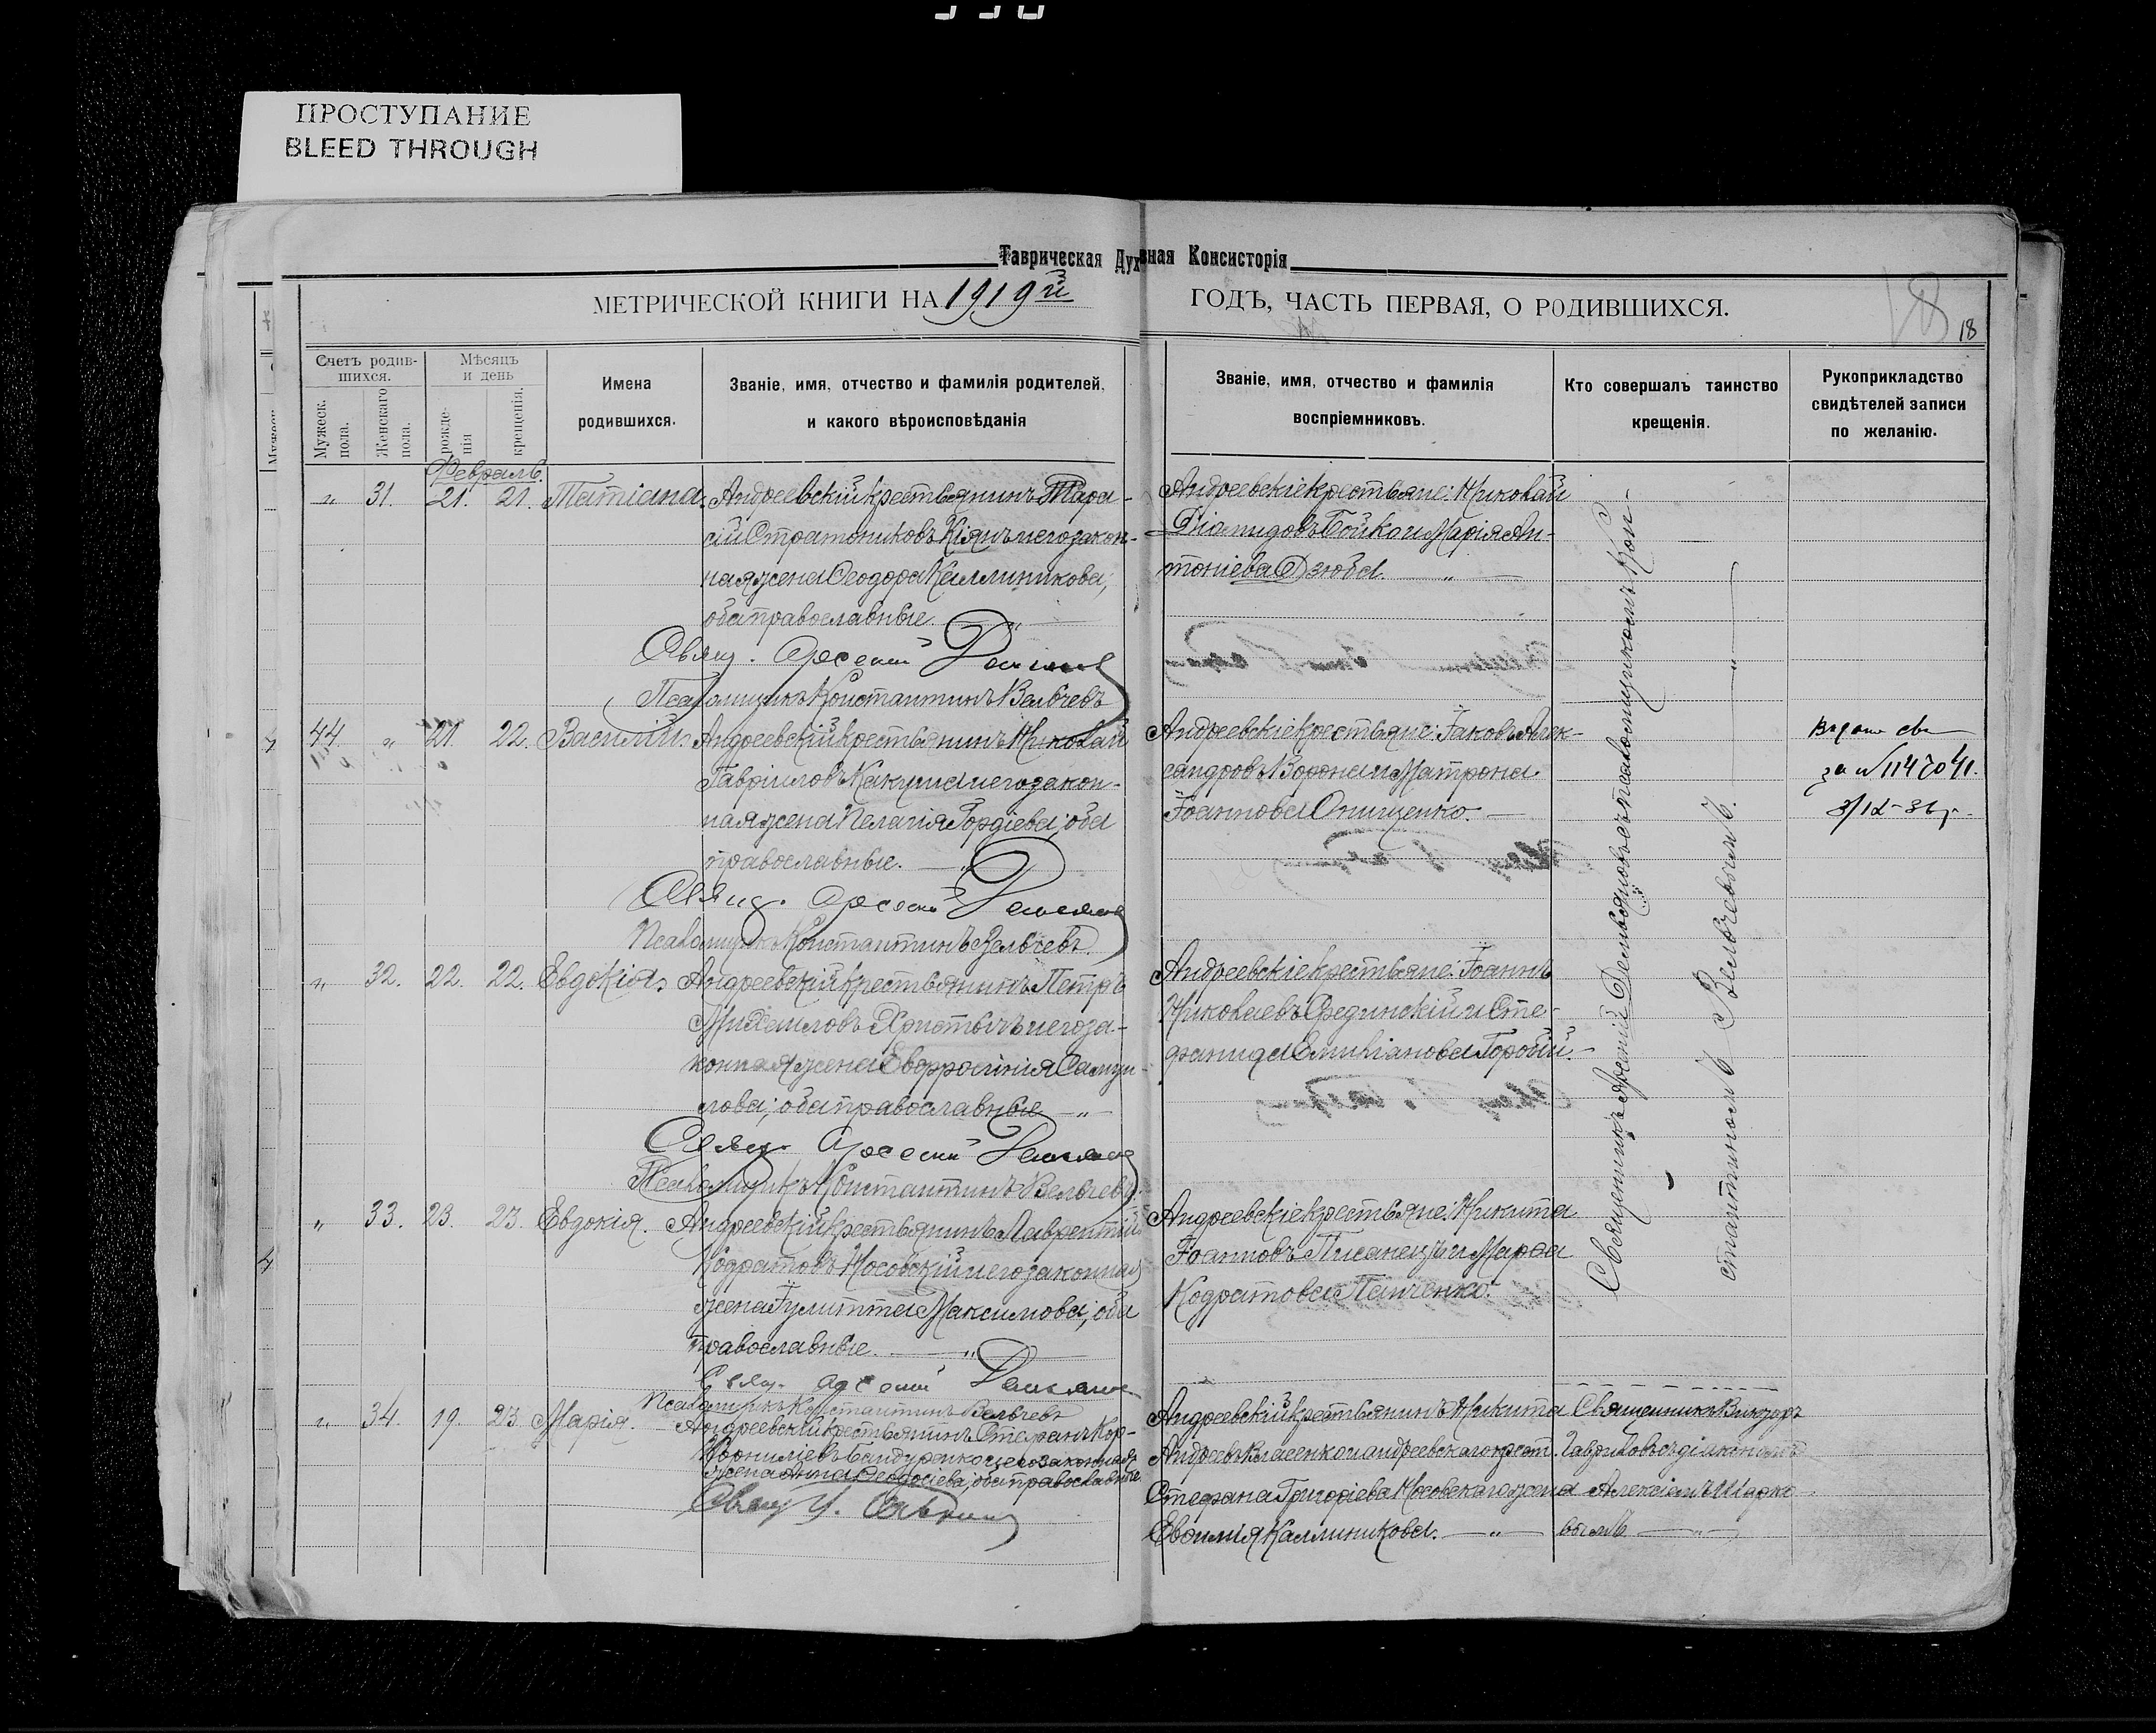 ПРОСТУПАНИЕ
BLEED THROUGH
Таврическая Духовная Консисторія
МЕТРИЧЕСКОЙ КНИГИ НА 1919й ГОДЪ, ЧАСТЬ ПЕРВАЯ, О РОДИВШИХСЯ.
18
18
Счетъ родив-
шихся.
Мужеск.
пола.
Женскаго
пола.
Мѣсяцъ
и день
рожде-
нія
крещенія.
Имена
родившихся.
Званіе, имя, отчество и фамилія родителей,
и какого вѣроисповѣданія
Званіе, имя, отчество и фамилія
воспріемниковъ.
Кто совершалъ таинство
крещенія.
Рукоприкладство
свидѣтелей записи
по желанію.
Февраль.
„ 31. 21. 21. Татіана. Андреевскій крестьянинъ Тара-
сій Стратониковъ Кіянъ и его закон-
ная жена Ѳеодора Каллиникова;
оба православные. „
Свящ. Арсеній Демьяновъ
Псаломщикъ Константинъ Вельчевъ
Андреевскіе крестьяне: Николай
Діамидовъ Бойко и Марія Ан-
тоніева Дзюба. „
44. „ 21. 22. Василій. Андреевскій крестьянинъ Николай
Гавріиловъ Какуша и его закон-
ная жена Пелагія Гордіева; оба
православные. „
Свящ. Арсеній Демьяновъ
Псаломщикъ Константинъ Вельчевъ.
Андреевскіе крестьяне: Іаковъ Алек-
сандровъ Ворона и Матрона
Іоаннова Онищенко.
Выдано св
за № 1147041.
3/IX-36 г.
„ 32. 22. 22. Евдокія. Андреевскій крестьянинъ Петръ
Михаиловъ Христычъ и его за-
конная жена Евфросинія Самуи-
лова; оба православные „
Свящ. Арсеній Демьяновъ
Псаломщикъ Константинъ Вельчевъ.
Андреевскіе крестьяне: Іоаннъ
Николаевъ Срединскій и Сте-
фанида Емиліанова Горобій.
„ 33. 23. 23. Евдокія. Андреевскій крестьянинъ Лаврентій
Кодратовъ Носовскій и его законная
жена Іулитта Максимова; оба
православные. „
Свящ. Арсеній Демьяновъ
Псаломщикъ Константинъ Вельчевъ
Андреевскіе крестьяне: Никита
Іоанновъ Писанецъ и Марѳа
Кодратова Панченко.
Священникъ Арсеній Демьяновъ съ псаломщикомъ Кон-
стантиномъ Вельчевымъ. „
„ 34. 19. 23. Марія. Андреевскій крестьянинъ Стефанъ Кор-
Корниліевъ Бандуренко и его законная
жена Анна Ѳеодосіева; оба православные
Свящ.
Андреевскій крестьянинъ Никита
Андреевъ Власенко и андреевскаго крест.
Стефана Григоріева Носовскаго жена
Евѳимія Каллиникова. „
Священникъ Викторъ
Гавриловъ съ діакономъ
Алексіемъ Шарко
вымъ „